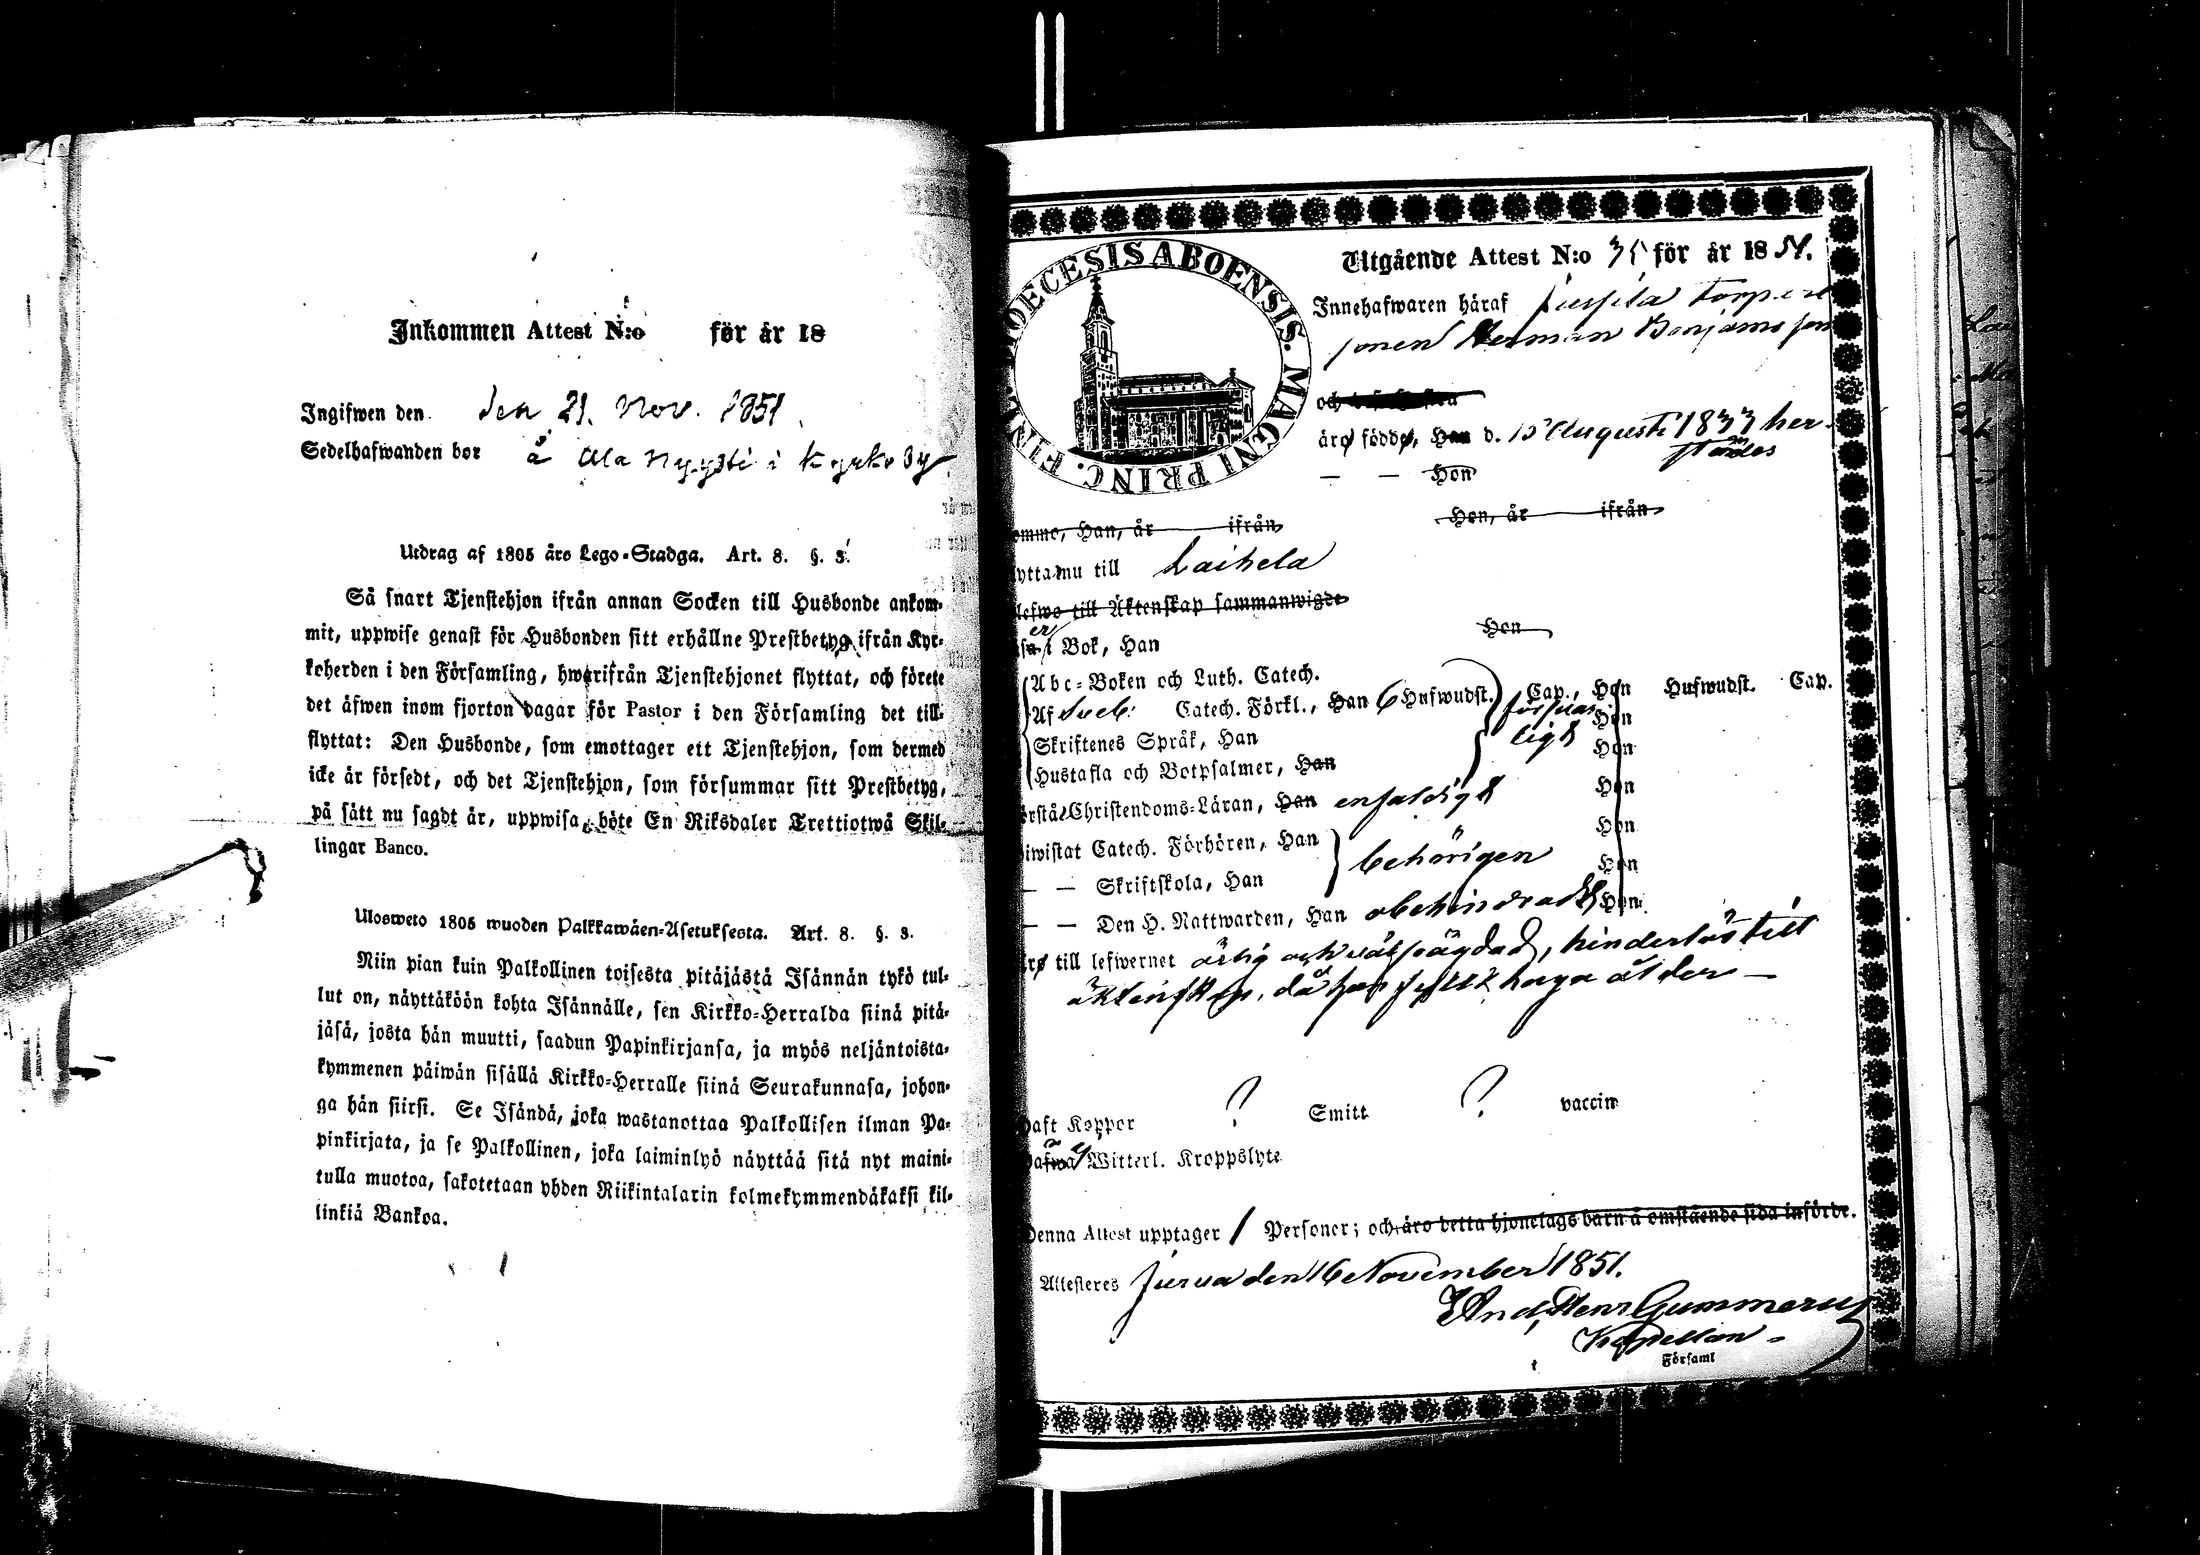 Inkommen Attest N:o för år 18
Ingifwen den den 21. Nov. 1851
Sedelhafwanden bor å Ala Nyysti i Kyrkoby
Utdrag af 1805 års Lego-Stadga. Art. 8. §. 3.
Så snart Tjenstehjon ifrån annan Socken till Husbonde ankom-
mit, uppwise genast för Husbonden sitt erhållne Prestbetyg ifrån Kyr-
koherden i den Församling, hwarifrån Tjenstehjonet flyttat, och förete
det äfwen inom fjorton dagar för Pastor i den Församling det till-
flyttat: Den Husbonde, som emottager ett Tjenstehjon, som dermed
icke är försedt, och det Tjenstehjon, som försummar sitt Prestbetyg,
på sätt nu sagdt är, uppwisa, böte En Riksdaler Trettiotwå Skil-
lingar Banco.
Ulosweto 1805 wuoden Palkkawäen-Asetuksesta. Art. 8. §. 3.
Niin pian kuin Palkollinen toisesta pitäjästä Isännän tykö tul-
lut on, näyttäköön kohta Isännälle, sen Kirkko-Herralda siinä pitä-
jäsä, josta hän muutti, saadun Papinkirjansa, ja myös neljäntoista-
kymmenen päiwän sisällä Kirkko-Herralle siinä Seurakunnasa, johon-
ga hän siirsi. Se Isändä, joka wastanottaa Palkollisen ilman Pa-
pinkirjata, ja se Palkollinen, joka laiminlyö näyttää sitä nyt maini-
tulla muotoa, sakotetaan yhden Riikintalarin kolmekymmendäkaksi kil-
linkiä Bankoa.
DIOECESIS ABOENSIS. MAGNI PRINC. FINL.
Utgående Attest N:o 35 för år 1851.
Innehafwaren häraf
sonen Herman Benjamsson
och
äro födde, Han d. 15 Augusti 1833 her-
städes
— — Hon
omme, Han, år ifrån Hon, år ifrån
ytta nu till Laihela
lefwo till Äktenskap sammanwigde
er
i Bok, Han Hon
Abc-Boken och Luth. Catech.
Af Sveb. Catech. Förkl., Han 6 Hufwudst. Cap., Hon Hufwudst. Cap.
försvar- Hon
Skriftenes Språk, Han ligt Hon
Hustafla och Botpsalmer, Han
Hon
örstå Christendoms-Läran, Han enfaldigt
Hon
iwistat Catech. Förhören, Han behörigen Hon
— — Skriftskola, Han
— — Den H. Nattwarden, Han obehindradt, Hon
äro till lefwernet ärlig och välfrägdad, hinderlös till
äktenskap, då han
haga ålder —
haft Koppor ? Smitt ? vaccin
Witterl. Kroppslyte
Denna Attest upptager 1 Personer; och äro detta hjonelags barn å omstående sida införde.
Attesteres Jurva den 16 November 1851.
And. Henr Gummerus
Kapellan
Församl